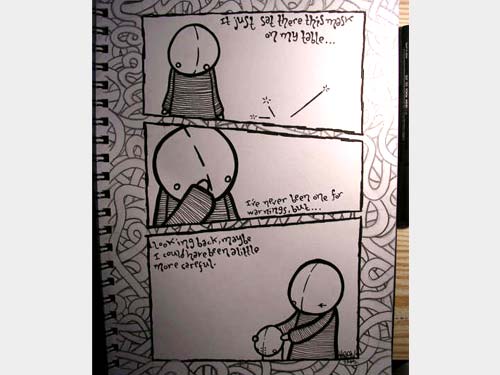 It just sat there this mask
on my table...
I've never been one for
warnings, but...
Looking back, maybe
I could have been a little
more careful.